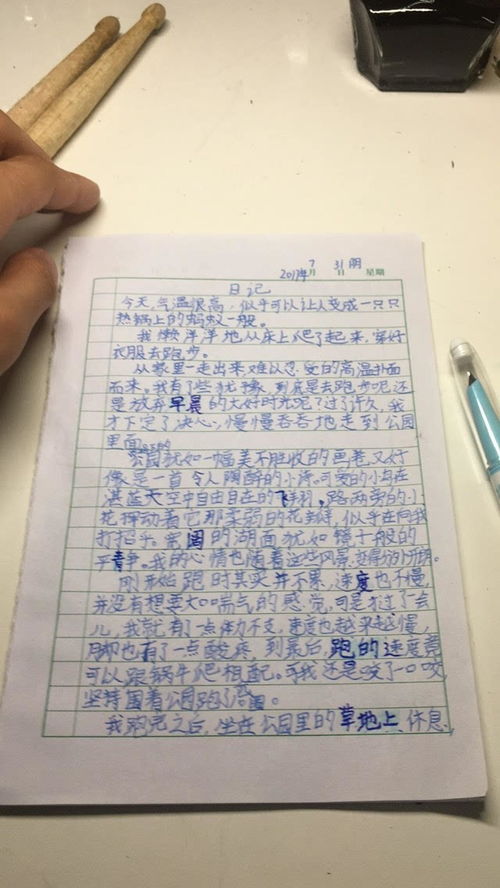 2017年7月31日 阴 星期
日记
今天,气温很高,似乎可以让人变成一只只
热锅上的蚂蚁一般。
我懒洋洋地从床上爬了起来,穿好
衣服去跑步。
从家里一走出来难以忍受的高温扑面
而来。我有了些犹豫,到底是去跑步呢还
是放弃早晨的大好时光呢?过了许久,我
才下定了决心,慢慢吞吞地走到公园
里面
公园犹如一幅美不胜收的画卷,又好
像是一首令人陶醉的小诗。可爱的小鸟在
湛蓝天空中自由自在的飞翔。路两旁的小
花挥动着它那柔弱的花瓣,似乎在向我
打招乎。宽阔的湖面犹如镜子般的
平静。我的心情也随着这些风景,变得份外开朗。
刚开始跑时其实并不累,速度也不慢,
并没有想要大口喘气的感觉,可是才过了一会
儿,我就有了一点体力不支,速度也越来越慢,
脚也有了一点酸疼,到最后,跑的速度竟
可以跟蜗牛爬相配。可我还是咬了一口咬
坚持围着公园跑了
我跑完之后,坐在公园里的草地上、休息、